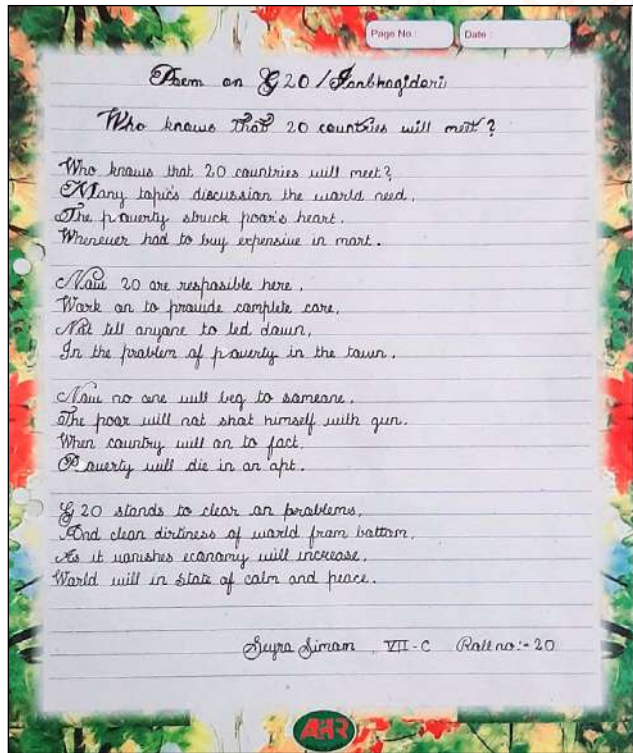 Page No.:
Date :
Poem on G20/Janbhagidari
Who knows that 20 countries will meet ?
Who knows that 20 countries will meet?
Many topics discussion the world need.
The poverty struck poor's heart.
Whenever had to buy expensive in mart.
Now 20 are resposible here,
Work on to provide complete care,
Not tell anyone to led down,
In the problem of poverty in the town.
Now no one will beg to someone,
The poor will not shot himself with gun.
When country will on to fact,
Poverty will die in an apt.
G 20 stands to clear on problems,
And clean dirtiness of world from bottom,
As it vanishes economy will increase,
World will in state of calm and peace.
Simam , VII-C Roll no:- 20
AHR